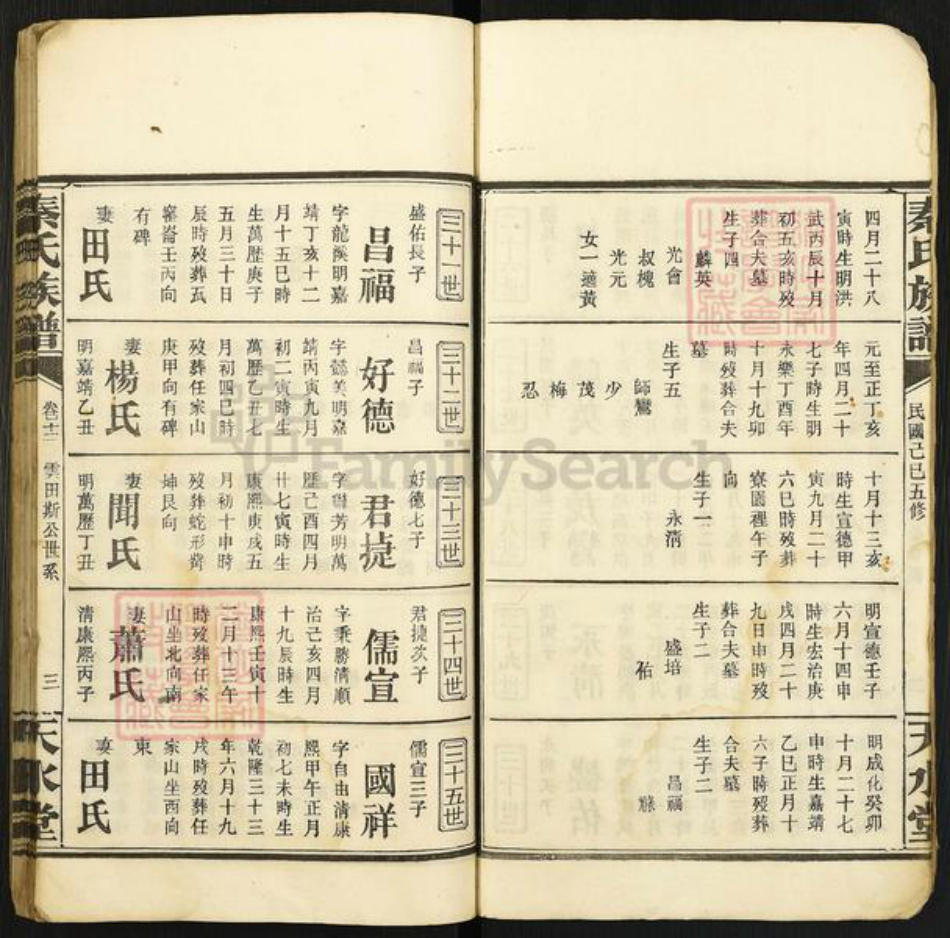 秦氏族譜
民國己巳五修
天水堂
四月二十八
寅時生明洪
武丙辰十月
初五亥時歿
葬合夫墓
生子四
麟英
光會
叔槐
光元
女一適黃
元至正丁亥
年四月二十
七子時生明
永樂丁酉年
十月十九卯
時歿葬合夫
墓
生子五
師鸞
少
茂
梅
忍
十月十三亥
時生宣德甲
寅九月二十
六巳時歿葬
寮園裡午子
向
生子一
永清
明宣德壬子
六月十四申
時生宏治庚
戌四月二十
九日申時歿
葬合夫墓
生子二
盛培
佑
明成化癸卯
十月二十七
申時生嘉靖
乙巳正月十
六子時歿葬
合夫墓
生子二
昌福
祿
三十一世
盛佑長子
昌福
字龍溪明嘉
靖丁亥十二
月十五巳時
生萬歷庚子
五月三十日
辰時歿葬瓦
窰崙壬丙向
有碑
妻田氏
三十二世
昌福子
好德
字懿美明嘉
靖丙寅九月
初二寅時生
萬歷乙丑七
月初四巳時
歿葬任家山
庚甲向有碑
妻楊氏
明嘉靖乙丑
三十三世
好德七子
君捷
字聲芳明萬
歷己酉四月
廿七寅時生
康熙庚戌五
月初十申時
歿葬蛇形嵛
坤艮向
妻聞氏
明萬歷丁丑
三十四世
君捷次子
儒宣
字秉勝清順
治己亥四月
十九辰時生
康熙壬寅十
二月十三午
時歿葬任家
山坐北向南
妻蕭氏
清康熙丙子
三十五世
儒宣三子
國祥
字自由清康
熙甲午正月
初七未時生
乾隆三十三
年六月十九
戌時歿葬任
家山坐西向
東
妻田氏
秦氏族譜
卷十二
雲田斯公世系
三
天水堂
FamilySearch